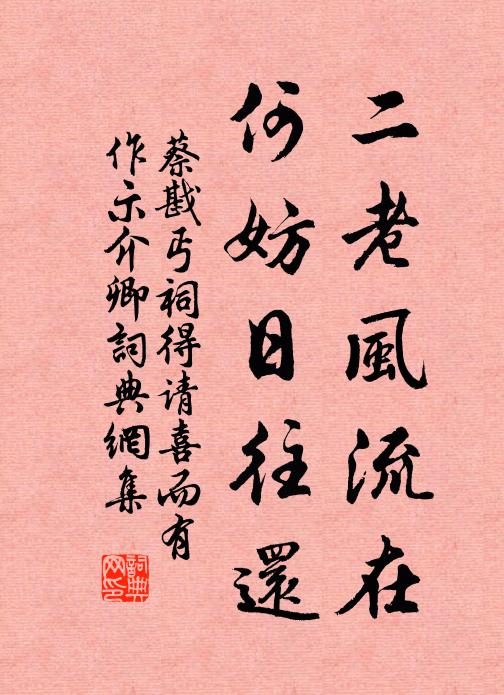 二老風流在
何妨日往還
蔡戡丐祠得请喜而有
作示介卿詞典網集
詞典
网印